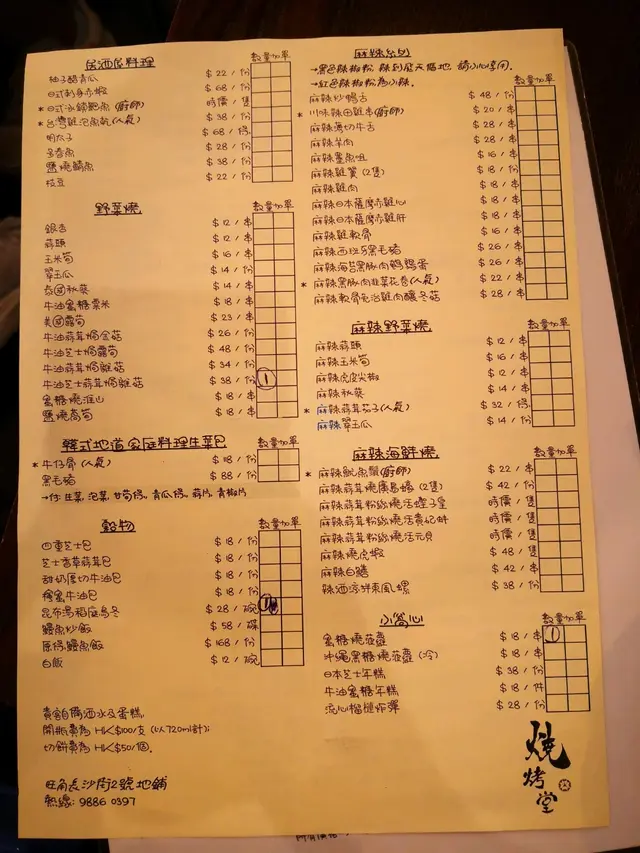 居酒屋料理 數量 加單
柚子醋青瓜 $22/份
日式刺身赤蝦 $68/份
*日式汆鮑魚(廚師) 時價/隻
*台灣雞泡魚乾(人氣) $38/份
明太子 $68/份
多春魚 $28/份
鹽燒鯖魚 $38/份
枝豆 $22/份
野菜燒 數量 加單
銀杏 $12/串
蒜頭 $12/串
玉米筍 $16/串
翠玉瓜 $14/份
泰國秋葵 $14/串
牛油蜜糖粟米 $18/串
美國露筍 $23/串
牛油蒜茸焗金菇 $26/份
牛油芝士焗露筍 $48/份
牛油蒜茸焗雜菇 $34/份
牛油芝士蒜茸焗雜菇 $38/份 1
蜜糖燒淮山 $18/份
鹽燒萵筍 $18/串
韓式地道家庭料理生菜包 數量 加單
*牛仔骨(人氣) $118/份
黑毛豬 $88/份
→ 生菜, 泡菜, 青瓜, 蒜片, 青椒片
穀物 數量 加單
四重芝士包 $18/份
芝士香草蒜茸包 $18/份
甜奶厚切牛油包 $18/份
檸蜜牛油包 $18/份
昆布湯稻庭烏冬 $28/碗 1
鰻魚炒飯 $58/碟
原條鰻魚飯 $168/份
白飯 $12/碗
貴客自備酒水及蛋糕,
開瓶費為 HK$100/支(以720ml計);
切餅費為 HK$50/個.
旺角長沙街2號地鋪
熱線: 9886 0397
麻辣 數量 加單
→黑色辣椒粉, 辣到 請小心享用.
→紅色辣椒粉為小辣.
麻辣炒鴨舌 $48/份
*川味辣田雞串(廚師) $20/串
麻辣薄切牛舌 $28/串
麻辣羊肉 $28/串
麻辣墨魚咀 $16/串
麻辣雞翼(2隻) $18/串
麻辣雞肉 $18/串
麻辣日本薩摩赤雞心 $18/串
麻辣日本薩摩赤雞肝 $18/串
麻辣雞軟骨 $16/串
麻辣西班牙黑毛豬 $26/串
麻辣海苔黑豚肉鵪鶉蛋 $26/串
*麻辣黑豚肉韭菜花卷(人氣) $22/串
麻辣軟骨免治雞肉釀冬菇 $28/串
麻辣野菜燒 數量 加單
麻辣蒜頭 $12/串
麻辣玉米筍 $16/串
麻辣虎皮尖椒 $12/串
麻辣秋葵 $14/串
*麻辣蒜茸茄子(人氣) $32/條
麻辣翠玉瓜 $14/份
麻辣海鮮燒 數量 加單
*麻辣魷魚鬚(廚師) $22/串
麻辣蒜茸燒廣島蠔(2隻) $42/份
麻辣蒜茸粉絲燒活蟶子皇 時價/隻
麻辣蒜茸粉絲燒活貴妃蚌 時價/隻
麻辣蒜茸粉絲燒活元貝 時價/隻
麻辣燒虎蝦 $48/隻
麻辣白鱔 $42/串
辣酒涼拌東風螺 $38/份
小窩心 數量 加單
蜜糖燒菠蘿 $18/串 1
沖繩黑糖燒菠蘿(冷) $18/串
日本芝士年糕 $38/份
牛油蜜糖年糕 $18/件
流心榴槤炸彈 $28/份
燒烤堂